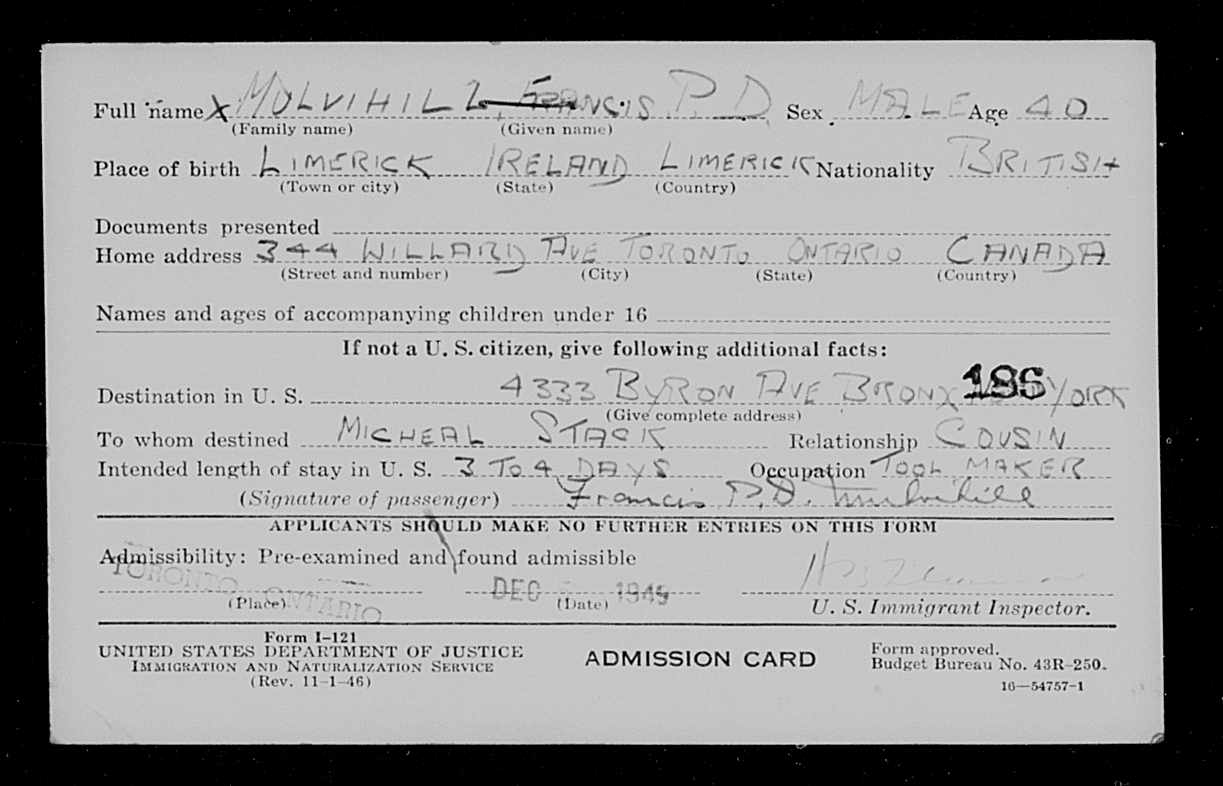 Full name X MULVIHILL, FRANCIS P. D. Sex MALE Age 40
(Family name) (Given name)
Place of birth LIMERICK IRELAND LIMERICK Nationality BRITISH
(Town or city) (State) (Country)
Documents presented
Home address 344 WILLARD AVE TORONTO ONTARIO CANADA
(Street and number) (City) (State) (Country)
Names and ages of accompanying children under 16
If not a U. S. citizen, give following additional facts:
Destination in U. S. 4333 BYRON AVE BRONX YORK
186
(Give complete address)
To whom destined MICHEAL STACK Relationship COUSIN
Intended length of stay in U. S. 3 TO 4 DAYS Occupation TOOL MAKER
(Signature of passenger) Francis P.D. Mulvihill
APPLICANTS SHOULD MAKE NO FURTHER ENTRIES ON THIS FORM
Admissibility: Pre-examined and found admissible
TORONTO, ONTARIO DEC 1949
(Place) (Date) U. S. Immigrant Inspector.
Form I-121
UNITED STATES DEPARTMENT OF JUSTICE
IMMIGRATION AND NATURALIZATION SERVICE
(Rev. 11-1-46)
ADMISSION CARD
Form approved.
Budget Bureau No. 43R-250.
16—54757-1